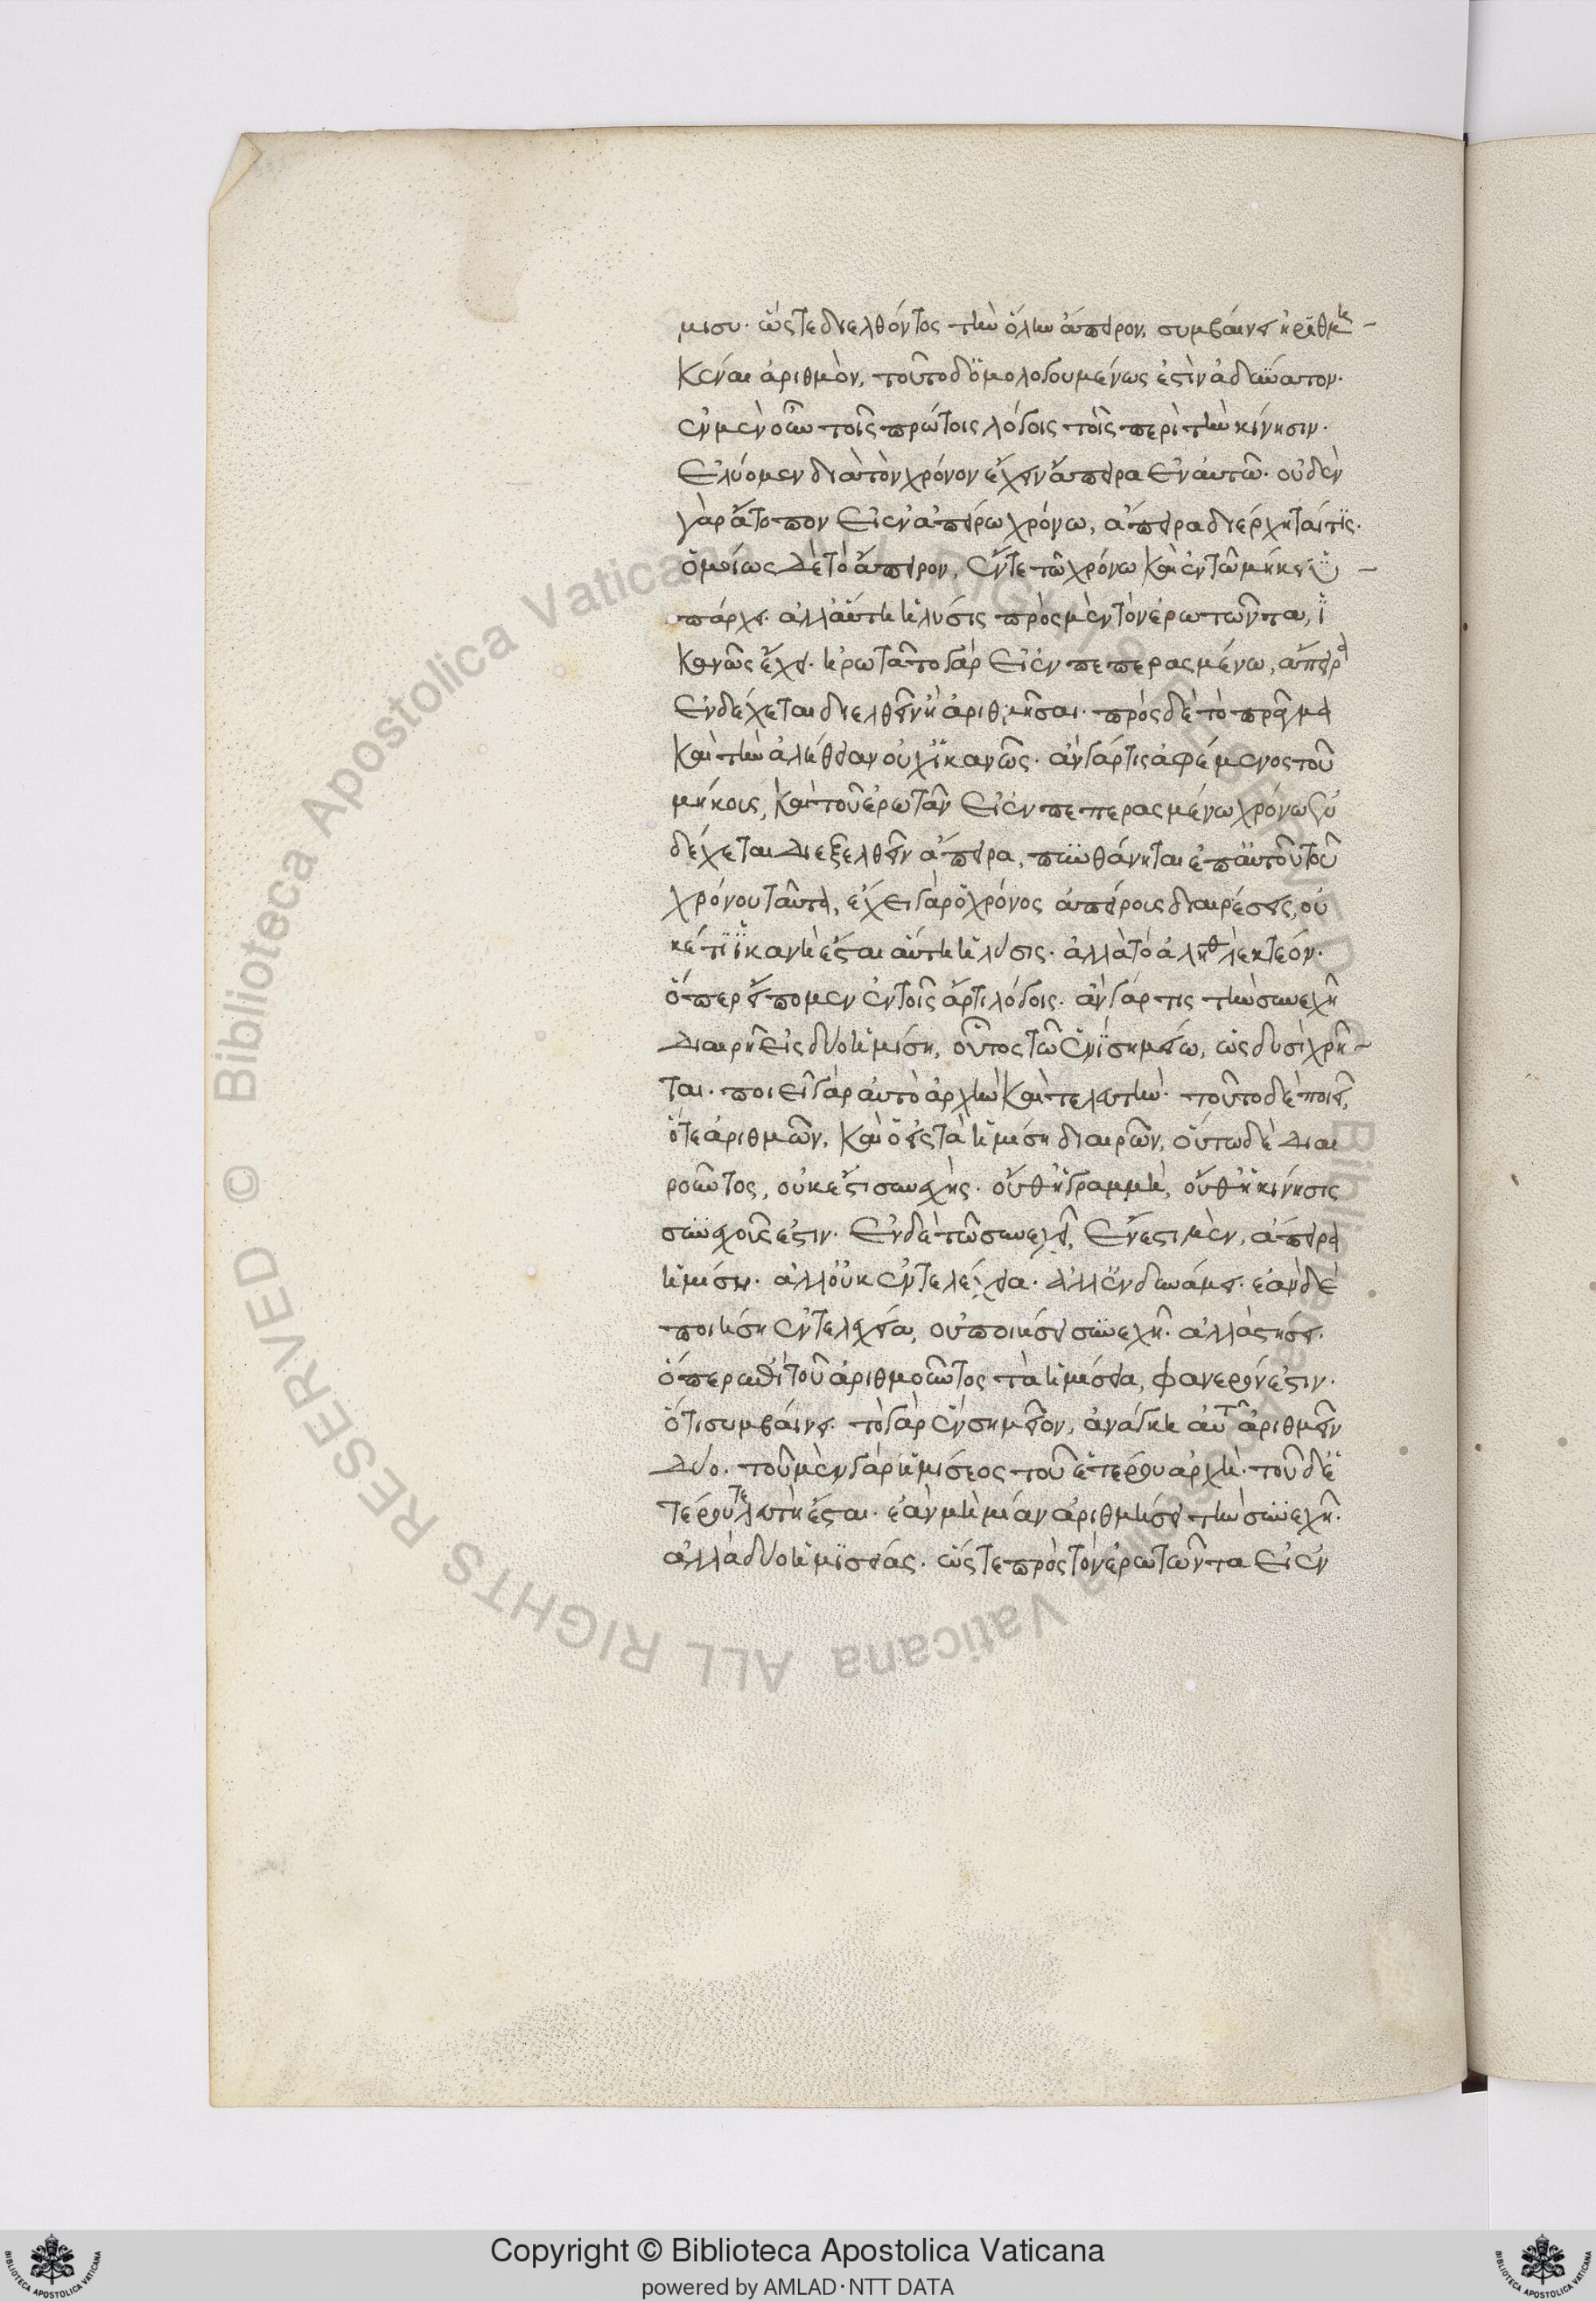 μισυ. ὥστε διελθόντος τὴν ὅλην ἄπειρον, συμβαίνει ἠριθμη
κέναι ἀριθμὸν, τοῦτο δ' ὁμολογουμένως ἐστὶν ἀδύνατον.
ἐν μὲν οὖν τοῖς πρώτοις λόγοις τοῖς περὶ τὴν κίνησιν.
ἐλύομεν διὰ τὸν χρόνον ἔχειν ἄπειρα ἐν αὑτῶ. οὐδὲν
γὰρ ἄτοπον εἰ ἐν ἀπείρω χρόνω, ἄπειρα διέρχηταί τις.
ὁμοίως δὲ τὸ ἄπειρον, ἔν τε τῶ χρόνω καὶ ἐν τῶ μήκει ὑ
πάρχει. ἀλλ' αὕτη ἡ λύσις πρὸς μὲν τὸν ἐρωτῶντα, ἱ
κανῶς ἔχει. ἠρωτᾶτο γὰρ εἰ ἐν πεπερασμένω, ἄπειρα
ἐνδέχεται διελθεῖν ἢ ἀριθμῆσαι. πρὸς δὲ τὸ πρᾶγμα
καὶ τὴν ἀλήθειαν οὐχ ἱκανῶς. ἂν γάρ τις ἀφέμενος τοῦ
μήκοις, καὶ τοῦ ἐρωτᾶν εἰ ἐν πεπερασμένω χρόνω ἐν
δέχεται διεξελθεῖν ἄπειρα, πυνθάνηται ἐπ' αὐτοῦ τοῦ
χρόνου ταῦτα, ἔχει γὰρ ὁ χρόνος ἀπείροις διαιρέσεις, οὐ
κέτι ἱκανὴ ἔσται αὕτη ἡ λύσις. ἀλλὰ τὸ ἀληθ λεκτέον.
ὅπερ εἴπομεν ἐν τοῖς ἄρτι λόγοις. ἂν γάρ τις τὴν συνεχῆ
διαιρῆ εἰς δύο ἡμίση, οὗτος τῶ ἑνὶ σημείω, ὡς δυσὶ χρῆ
ται. ποιεῖ γὰρ αὐτὸ ἀρχὴν καὶ τελευτὴν. τοῦτο δὲ ποιεῖ,
ὅ τε ἀριθμῶν, καὶ ὁ εἰς τὰ ἡμίση διαιρῶν, οὕτω δὲ διαι
ροῦντος, οὐκ ἔστι συνεχὴς. οὔθ' ἡ γραμμὴ, οὔθ' ἡ κίνησις
συνεχοῦς ἐστιν. ἐν δὲ τῶ συνεχεῖ, ἔνεστι μὲν, ἄπειρα
ἡμίση. ἀλλ' οὐκ ἐντελέχεια. ἀλλ' ἐν δυνάμει. ἐὰν δὲ
ποιήση ἐντελεχεία, οὐ ποιήσει συνεχῆ. ἀλλὰ στήσει.
ὅπερ ἐπὶ τοῦ ἀριθμοῦντος τὰ ἡμίσεια, φανερόν ἐστιν.
ὅτι συμβαίνει. τὸ γὰρ ἓν σημεῖον, ἀνάγκη αὐτῶ ἀριθμεῖν
δύο. τοῦ μὲν γὰρ ἡμίσεος τοῦ ἑτέρου ἀρχὴ. τοῦ δ' ἑ
τέρου τελευτὴ ἔσται. ἐὰν μὴ μίαν ἀριθμήσει τὴν συνεχῆ.
ἀλλὰ δύο ἡμισείας. ὥστε πρὸς τὸν ἐρωτῶντα εἰ ἐν
Copyright © Biblioteca Apostolica Vaticana
powered by AMLAD·NTT DATA